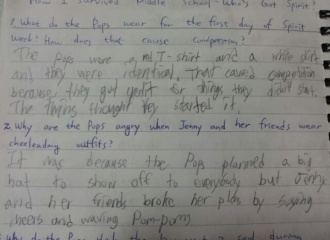 How I Survived Middle School - Who's Got Spirit?
1. What do the Pops wear for the first day of Spirit
Week? How does that cause
The Pops were a red T-shirt and a white skirt
and they were identical. That caused competition
because they got credit for things they didn't start.
The Twins thought they started it.
2. Why are the Pops angry when Jenny and her friends wear
cheerleading outfits?
It was because the Pops planned a big
to show off to everybody but Jenny
and her friends broke her plan by saying
cheers and waving Pom-poms
why do the Pops